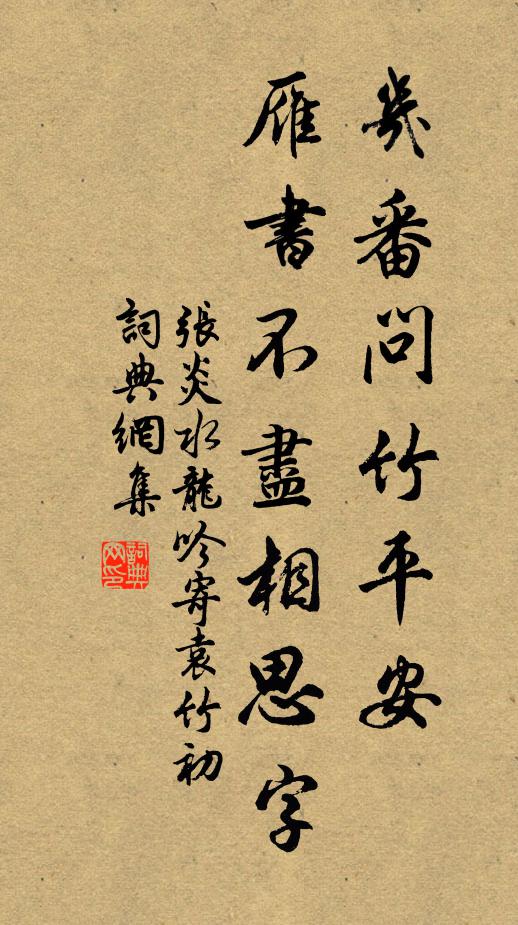 幾番問竹平安
雁書不盡相思字
張炎水龍吟寄袁竹初
詞典網集
詞典网印